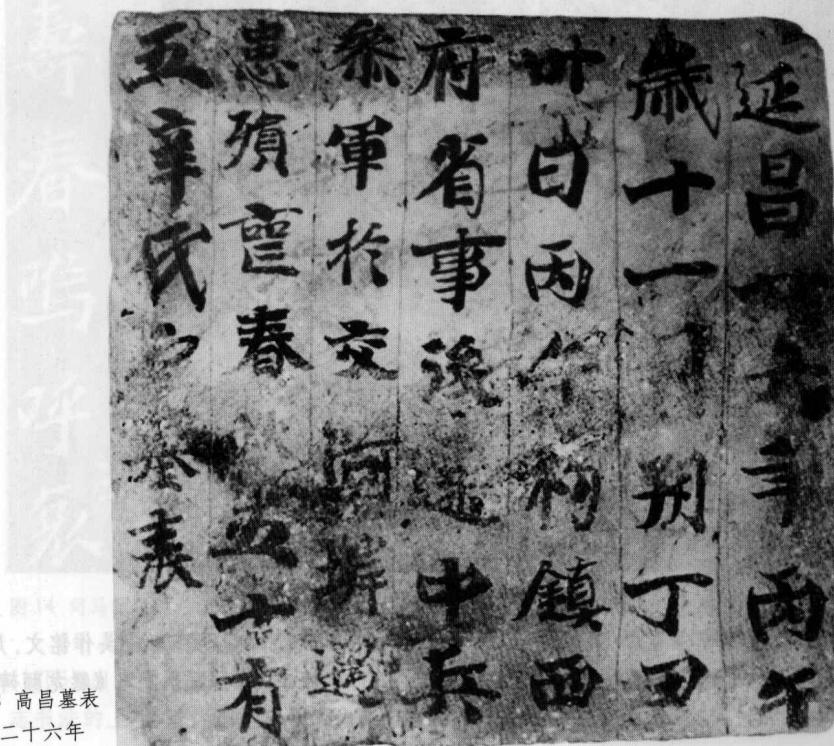 延昌廿六年丙午
歲十一月朔丁丑
卅日丙午初鎮西
府省事後遷中兵
參軍於交河岸遇
患殞喪春五十有
五辛氏之墓表
高昌墓表
二十六年